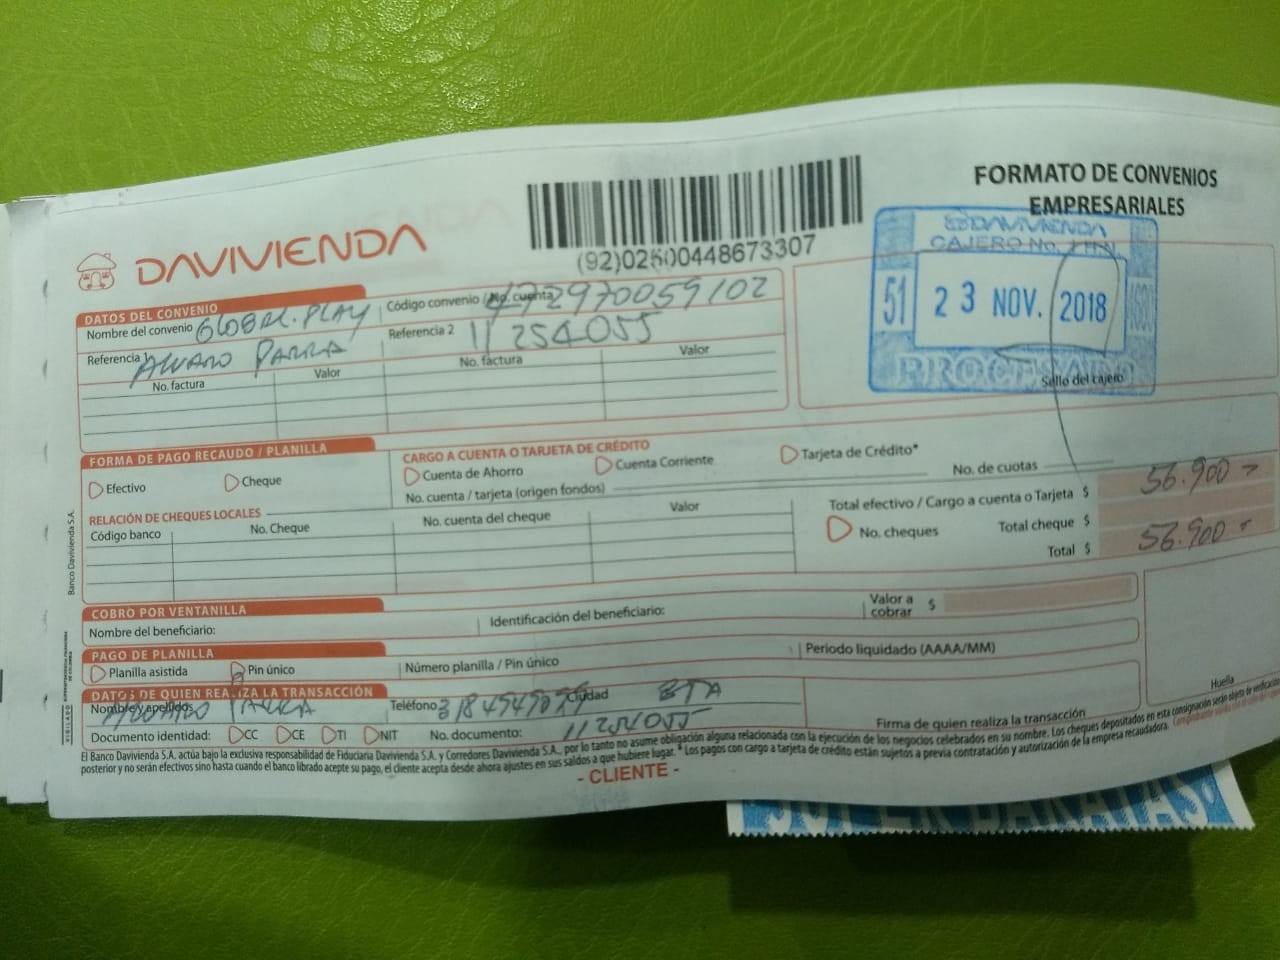 FORMATO DE CONVENIOS
EMPRESARIALES
(92)02600448673307
DAVIVIENDA
DAVIVIENDA
CAJERO No.
51 23 NOV. 2018
PROCESADO
Sello del cajero
DATOS DEL CONVENIO
Nombre del convenio GLOBAL PLAY Código convenio / No. cuenta 472970059102
Referencia 1 ALVARO PARRA Referencia 2 11254055
No. factura Valor No. factura Valor
FORMA DE PAGO RECAUDO / PLANILLA
Efectivo Cheque
CARGO A CUENTA O TARJETA DE CRÉDITO
Cuenta de Ahorro Cuenta Corriente Tarjeta de Crédito*
No. cuenta / tarjeta (origen fondos) No. de cuotas
RELACIÓN DE CHEQUES LOCALES
Código banco No. Cheque No. cuenta del cheque Valor
Total efectivo / Cargo a cuenta o Tarjeta $ 56.900
No. cheques Total cheque $
Total $ 56.900
COBRO POR VENTANILLA
Nombre del beneficiario: Identificación del beneficiario: Valor a cobrar $
PAGO DE PLANILLA
Planilla asistida Pin único Número planilla / Pin único Periodo liquidado (AAAA/MM)
DATOS DE QUIEN REALIZA LA TRANSACCIÓN
Nombre y apellidos ALVARO PARRA Teléfono Ciudad BTA
Documento identidad: CC CE TI NIT No. documento: 11254055 Firma de quien realiza la transacción
Huella
El Banco Davivienda S.A. actúa bajo la exclusiva responsabilidad de Fiduciaria Davivienda S.A. y Corredores Davivienda S.A., por lo tanto no asume obligación alguna relacionada con la ejecución de los negocios celebrados en su nombre. Los cheques depositados en esta consignación serán objeto de verificación
posterior y no serán efectivos sino hasta cuando el banco librado acepte su pago, el cliente acepta desde ahora ajustes en sus saldos a que hubiere lugar. * Los pagos con cargo a tarjeta de crédito están sujetos a previa contratación y autorización de la empresa recaudadora.
- CLIENTE -
Banco Davivienda S.A.
VIGILADO SUPERINTENDENCIA FINANCIERA DE COLOMBIA